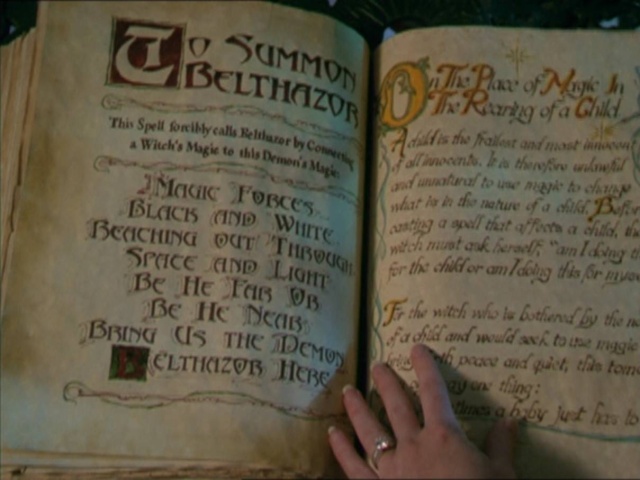 To Summon
Belthazor
This Spell forcibly calls Belthazor by Connecting
a Witch's Magic to this Demon's Magic.
Magic Forces
Black and White
Reaching out Through
Space and Light
Be He Far Or
Be He Near
Bring Us the Demon
Belthazor Here
On The Place of Magic In
The Rearing of a Child
A child is the frailest and most innocent
of all innocents. It is therefore unlawful
and unnatural to use magic to change
what is in the nature of a child. Before
casting a spell that affects a child, the
witch must ask herself, "am I doing this
for the child or am I doing this for
For the witch who is bothered by the
of a child and would seek to use magic
peace and quiet, this
may one thing:
a baby just